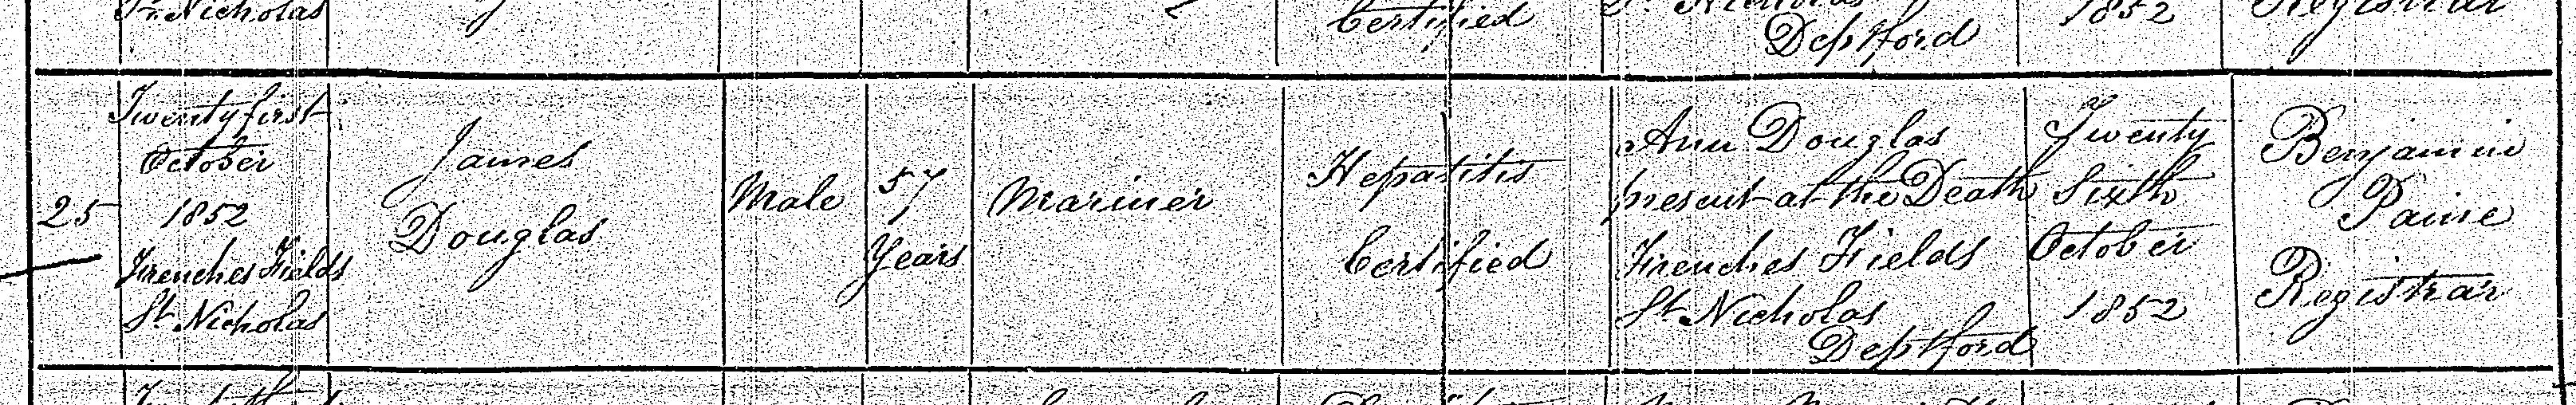 St. Nicholas
Certified
St. Nicholas
Deptford
1852
Registrar
25
Twenty first
October
1852
Frenches Fields
St. Nicholas
James
Douglas
Male
57
Years
Mariner
Hepatitis
Certified
Ann Douglas
present at the Death
Frenches Fields
St. Nicholas
Deptford
Twenty
Sixth
October
1852
Benjamin
Paine
Registrar